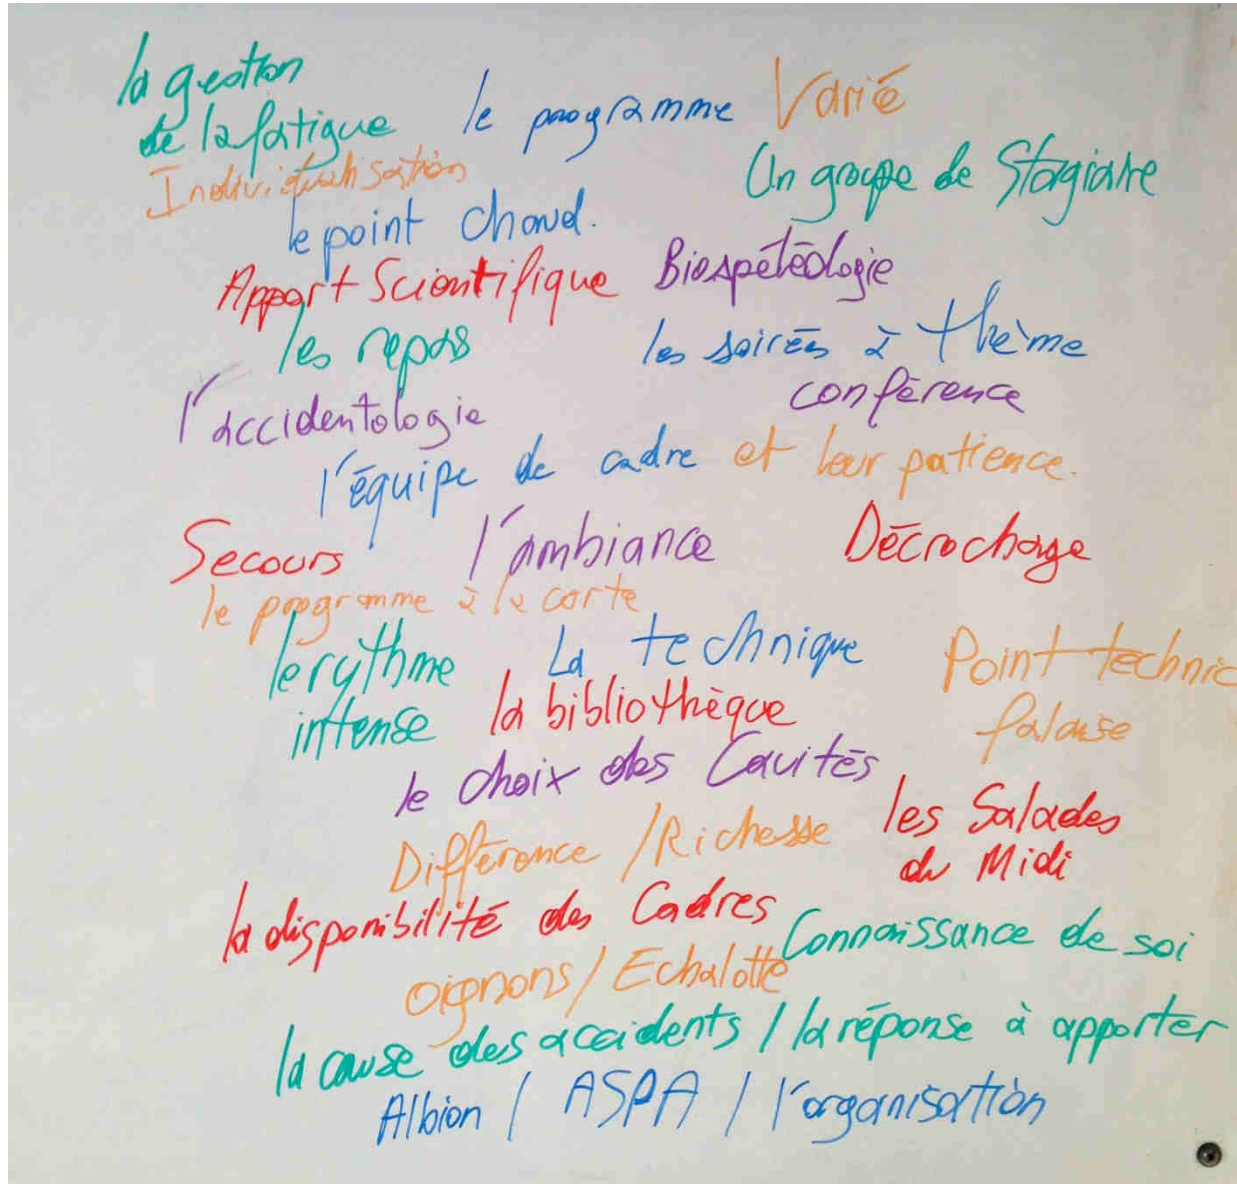 la gestion
de la fatigue le programme Varié
Individualisation Un groupe de Stagiaire
le point chaud.
Apport Scientifique Biospéléologie
les repas les soirées à thème
l'accidentologie conférence
l'équipe de cadre et leur patience.
Secours l'ambiance Décrochage
le programme à la carte
le rythme La technique Point technic
intense la bibliothèque falaise
le choix des Cavités
Différence / Richesse les Salades
la disponibilité des Cadres du Midi
oignons / Echalotte Connaissance de soi
la cause des accidents / la réponse à apporter
Albion / ASPA / l'organisation